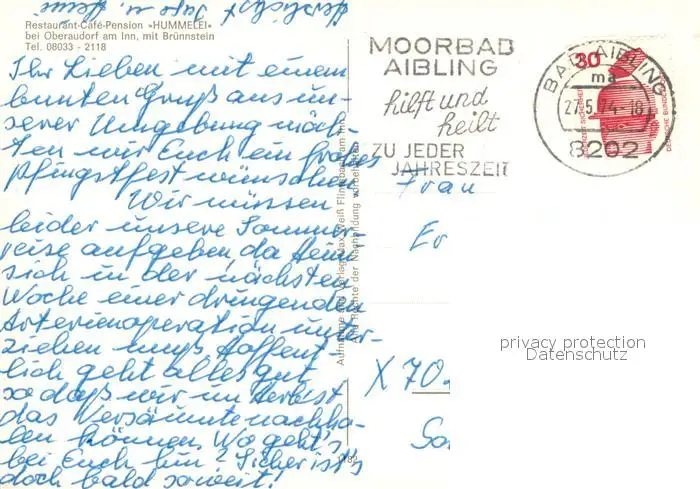 Herzlichst
Restaurant-Café-Pension »HUMMELEI«
bei Oberaudorf am Inn, mit Brünnstein
Tel. 08033 - 2118
Ihr Lieben mit einem
bunten Gruß aus un-
serer Umgebung möch-
ten wir Euch ein frohes
Pfingstfest wünschen
Wir müssen
leider unsere Sommer-
reise aufgeben, da Heini
sich in der nächsten
Woche einer dringenden
Arterienoperation unter-
ziehen muß. Hoffent-
lich geht alles gut
so daß wir im Herbst
das Versäumte nachho-
len können. Wie geht's
bei Euch hin? Sicher ist's
doch bald soweit!
Aufnahme und Verlag: Max Weiß Flintsbach am Inn
Alle Rechte der Nachahmung vorbehalten
MOORBAD
AIBLING
hilft und
heilt
ZU JEDER
JAHRESZEIT
BAD AIBLING
ma
27.5.74-18
8202
30
DEUTSCHE BUNDES
Frau
Er
X 70
So
privacy protection
Datenschutz